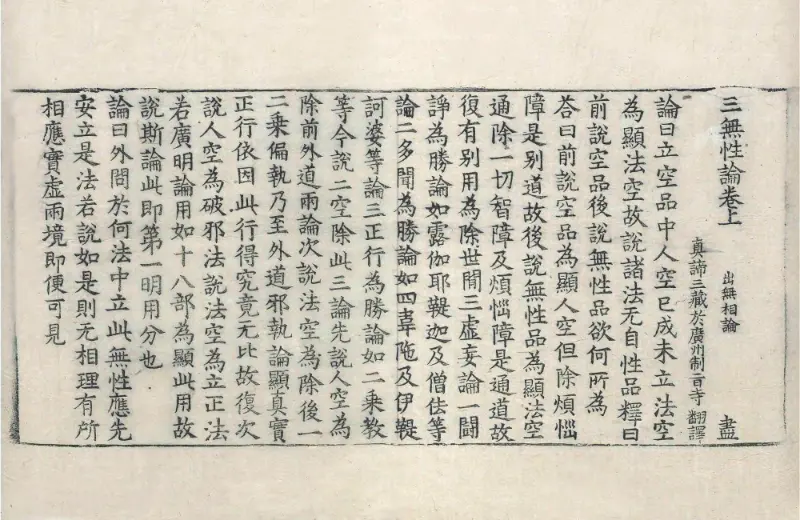 三無性論卷上 出無相論 盡
真諦三藏於廣州制旨寺翻譯
論曰立空品中人空已成未立法空
為顯法空故說諸法无自性品釋曰
前說空品後說無性品欲何所為
荅曰前說空品為顯人空但除煩惱
障是别道故後說無性品為顯法空
通除一切智障及煩惱障是通道故
復有别用為除世間三虛妄論一鬪
諍為勝論如露伽耶鞮迦及僧佉等
論二多聞為勝論如四韋陁及伊鞮
訶婆等論三正行為勝論如二乗教
等今說二空除此三論先說人空為
除前外道兩論次說法空為除後一
二乗偏執乃至外道邪執論顯真實
正行依因此行得究竟无比故復次
說人空為破邪法說法空為立正法
若廣明論用如十八部為顯此用故
說斯論此即第一明用分也
論曰外問於何法中立此無性應先
安立是法若說如是則无相理有所
相應實虛兩境即便可見